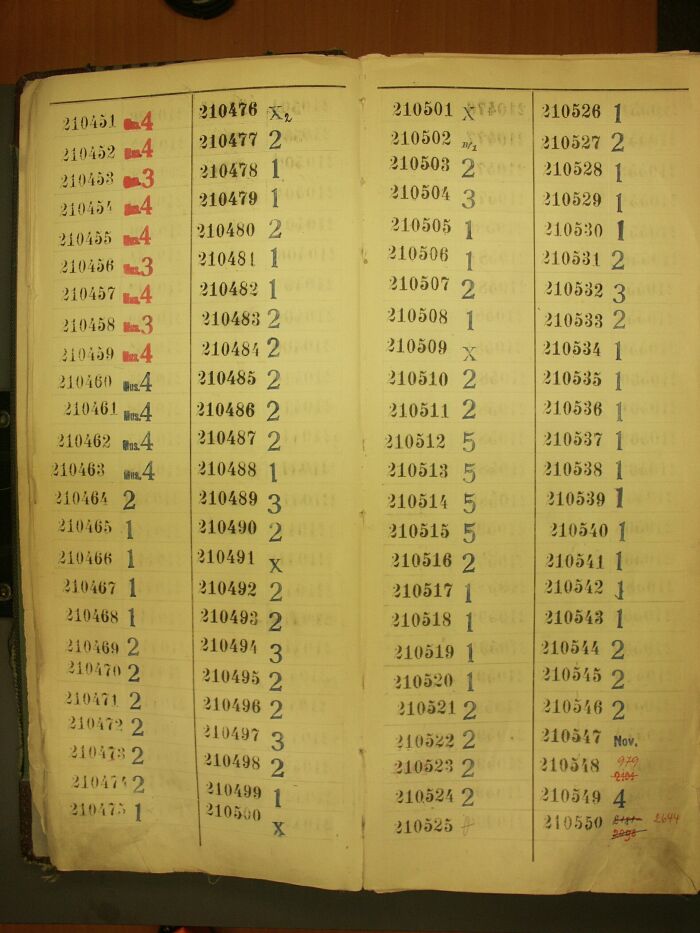 210451 4
210452 4
210453 3
210454 4
210455 4
210456 3
210457 4
210458 3
210459 4
210460 Nus. 4
210461 Nus. 4
210462 Nus. 4
210463 Nus. 4
210464 2
210465 1
210466 1
210467 1
210468 1
210469 2
210470 2
210471 2
210472 2
210473 2
210474 2
210475 1
210476 X2
210477 2
210478 1
210479 1
210480 2
210481 1
210482 1
210483 2
210484 2
210485 2
210486 2
210487 2
210488 1
210489 3
210490 2
210491 X
210492 2
210493 2
210494 3
210495 2
210496 2
210497 3
210498 2
210499 1
210500 X
210501 X
210502
210503 2
210504 3
210505 1
210506 1
210507 2
210508 1
210509 X
210510 2
210511 2
210512 5
210513 5
210514 5
210515 5
210516 2
210517 1
210518 1
210519 1
210520 1
210521 2
210522 2
210523 2
210524 2
210525
210526 1
210527 2
210528 1
210529 1
210530 1
210531 2
210532 3
210533 2
210534 1
210535 1
210536 1
210537 1
210538 1
210539 1
210540 1
210541 1
210542 1
210543 1
210544 2
210545 2
210546 2
210547 Nov.
210548 979
210549 4
210550 2644